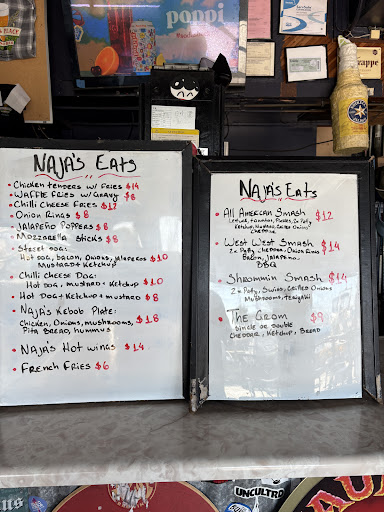 poppi
Frappe
NAJA'S EATS
• Chicken tenders w/ Fries $14
• WAFFLE FRIES w/ GRAVY $8
• Chilli Cheese Fries $12
• Onion Rings $8
• JALAPEÑO POPPERS $8
• Mozzarella Sticks $8
• Street Dog:
Hot dog, bacon, onions, Jalapenos $10
Mustard + Ketchup
• Chilli Cheese Dog:
Hot dog, mustard + ketchup $10
• Hot Dog + Ketchup + mustard $8
• NAJA'S Kebob Plate:
Chicken, Onions, mushrooms, $18
Pita Bread, Hummus
• NAJA'S Hot wings $14
• FRENCH FRIES $6
NAJA'S EATS
• All American Smash $12
Cheddar
• West West Smash $14
2x Patty, cheddar, Onion Rings
Bacon, Jalapeno,
BBQ
• Shroomin Smash $14
2x Patty, Swiss, Grilled Onions
Mushrooms, teriyaki
• The Grom $9
Single or double
CHEDDAR, KETCHUP, BREAD
UNCULTRD